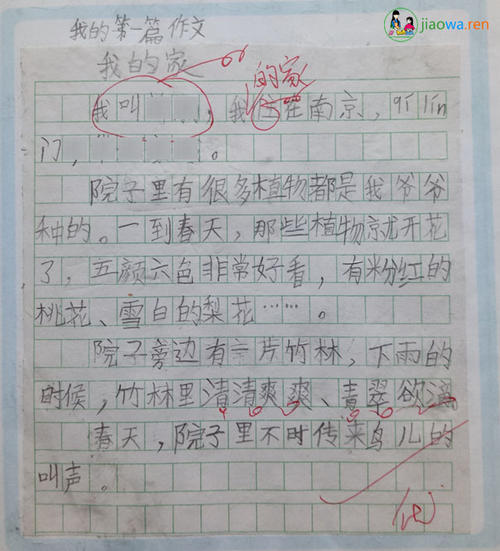 jiaowa.ren
我的第一篇作文
我的家
的家
我叫，我住在南京，qílín
门，。
院子里有很多植物都是我爷爷
种的。一到春天，那些植物就开花
了，五颜六色非常好看，有粉红的
桃花、雪白的梨花……。
院子旁边有一片竹林，下雨的
时候，竹林里清清爽爽、青翠欲滴
春天，院子里不时传来鸟儿的
叫声。